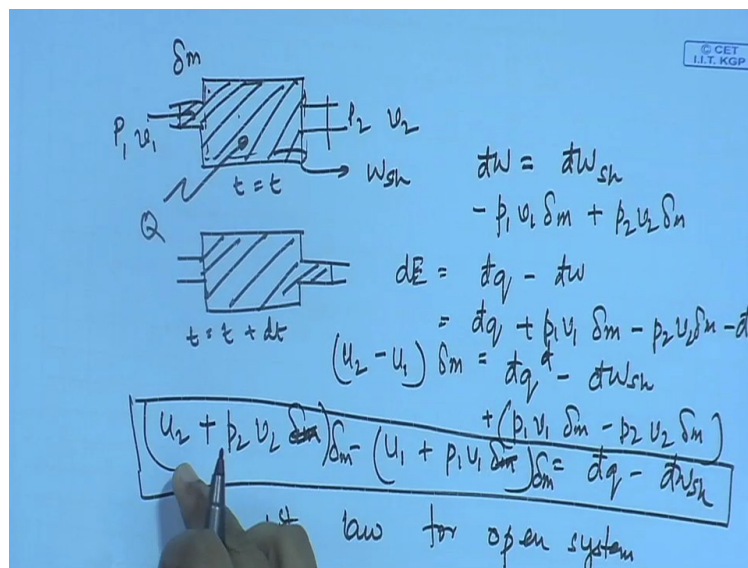 © CET
I.I.T. KGP
δm
P₁ v₁
P₂ v₂
W_sh
t = t
Q
t = t + dt
đW = đW_sh
- p₁ v₁ δm + p₂ v₂ δm
dE = đq - đw
= đq + p₁ v₁ δm - p₂ v₂ δm - đ
(u₂ - u₁) δm = đq - đW_sh
+ (p₁ v₁ δm - p₂ v₂ δm)
(u₂ + p₂ v₂) δm - (u₁ + p₁ v₁) δm = đq - đW_sh
st law for open system